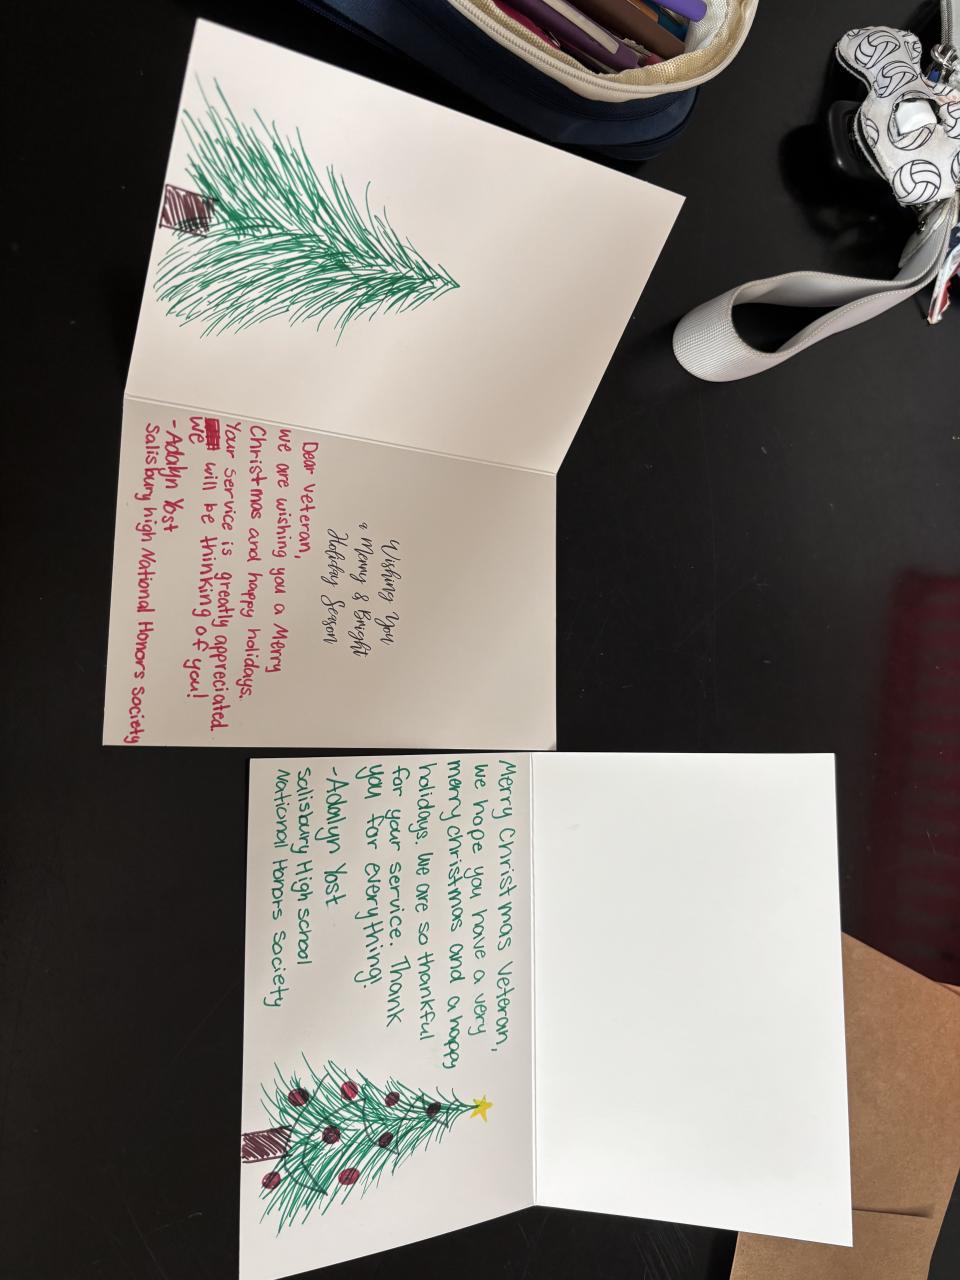 Wishing You
a Merry & Bright
Holiday Season
Dear Veteran,
we are wishing you a Merry
Christmas and happy holidays.
Your service is greatly appreciated.
We will be thinking of you!
-Adalyn Yost
Salisbury high National Honors Society
Merry Christmas Veteran,
we hope you have a very
merry christmas and a happy
holidays. We are so thankful
for your service. Thank
you for everything!
-Adalyn Yost
Salisbury High school
National Honors Society